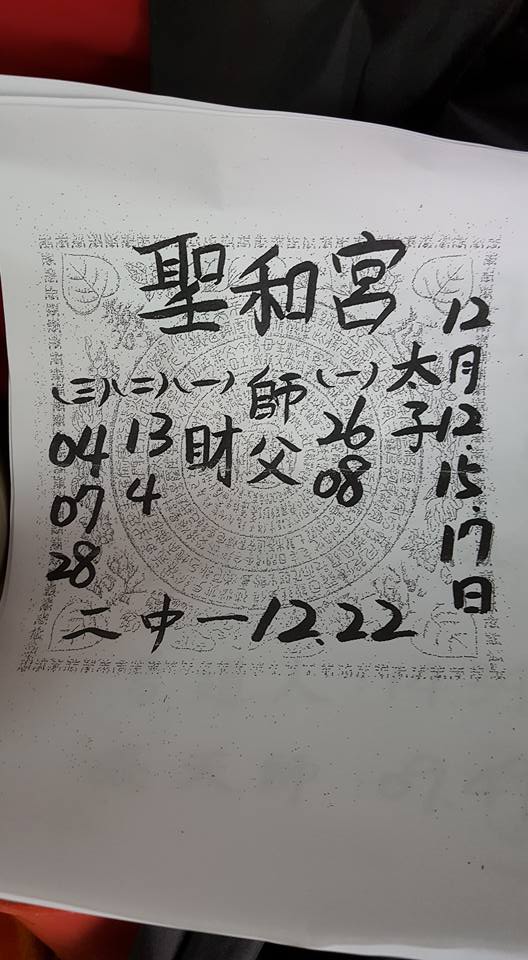 聖和宮
12月12.15.17日
太子
(一) 26 08
師父
(一) 財
(二) 13 4
(三) 04 07 28
二中一 12.22